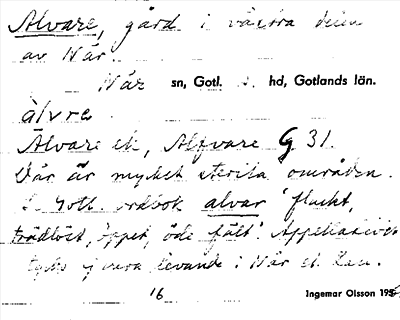 Alvare, gård i västra delen
av När.
När sn, Gotl. s. hd, Gotlands län.
àlvre
Älvare ek, Alfvare G 31.
Där är mycket sterila områden.
I Gotl. ordbok alvar 'flackt,
trädlöst, öppet, öde fält'. Appellativet
tycks ej vara levande i När
16
Ingemar Olsson 195